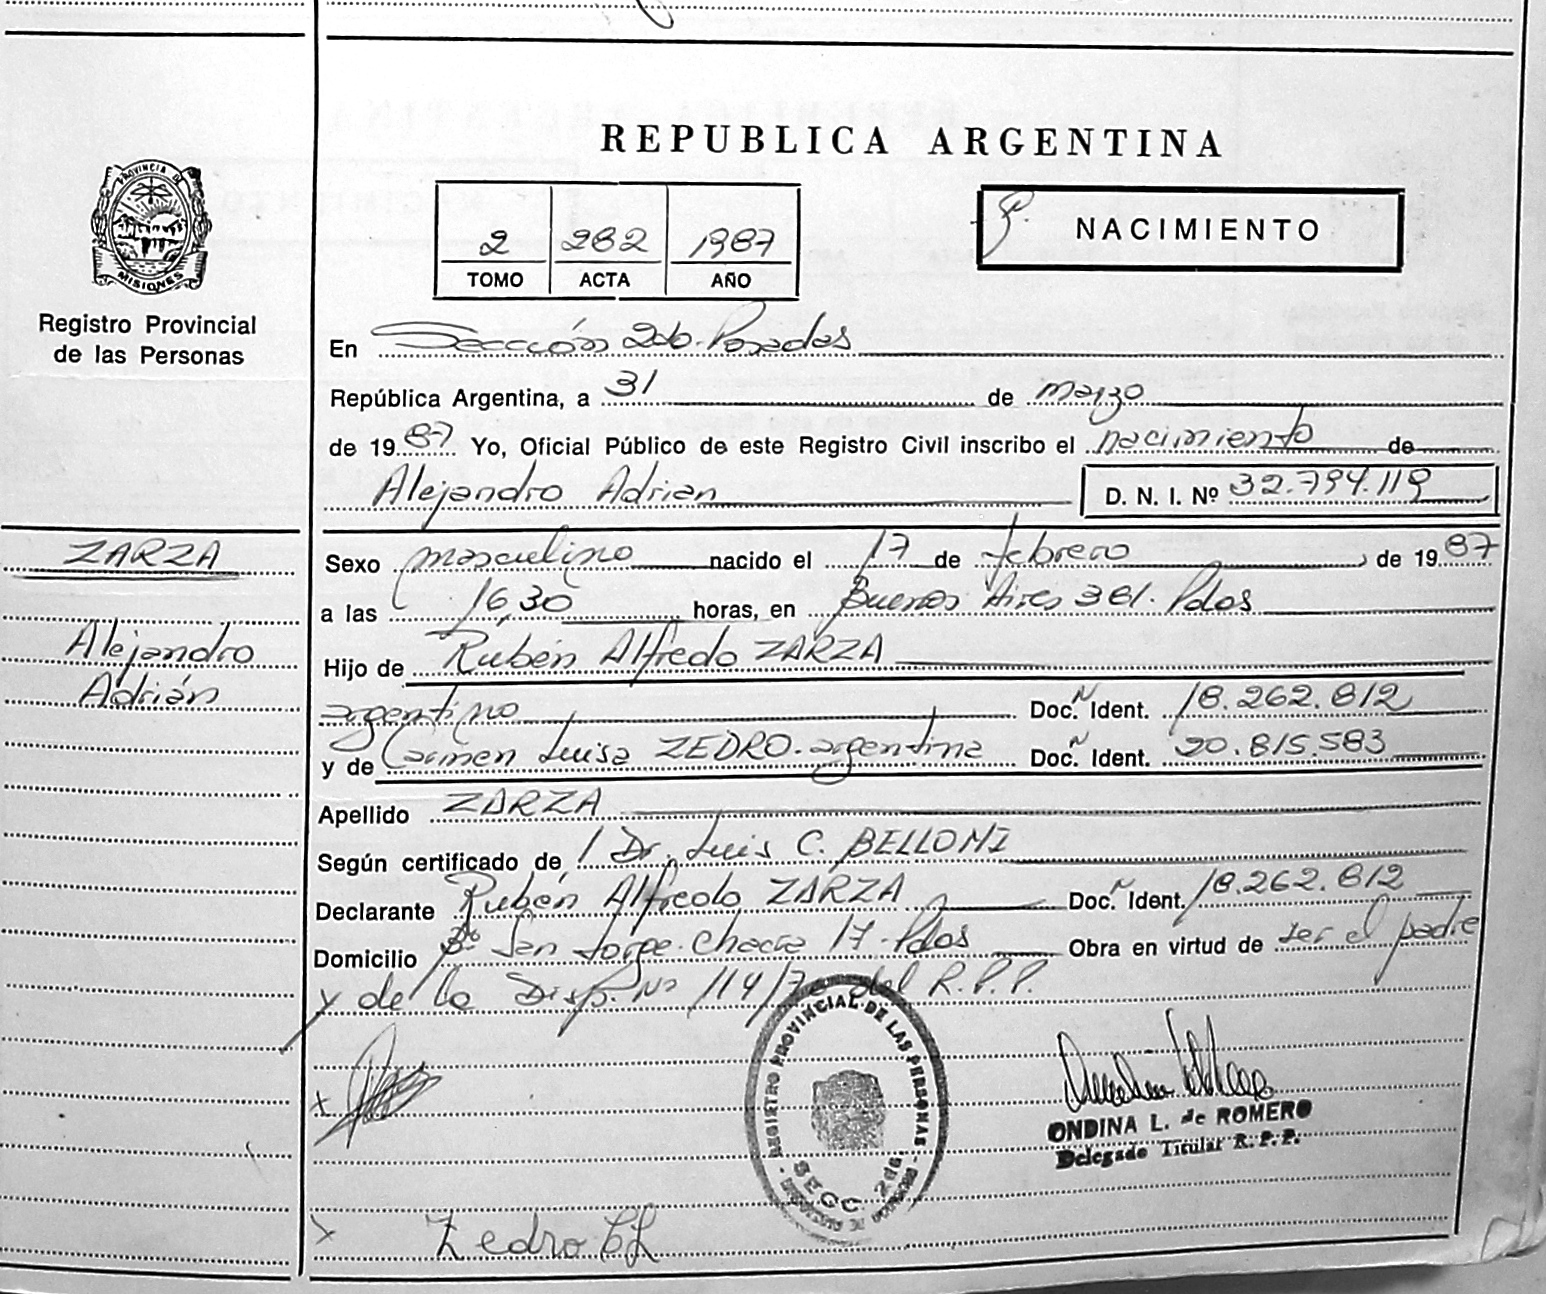 PROVINCIA DE
MISIONES
Registro Provincial
de las Personas
REPUBLICA ARGENTINA
2 282 1987
TOMO ACTA AÑO
NACIMIENTO
En Sección 2da. Posadas
República Argentina, a 31 de marzo
de 1987 Yo, Oficial Público de este Registro Civil inscribo el nacimiento de
Alejandro Adrian D. N. I. Nº 32.794.119
ZARZA
Alejandro
Adrián
Sexo masculino nacido el 17 de febrero de 1987
a las 16,30 horas, en Buenos Aires 381. Pdas
Hijo de Rubén Alfredo ZARZA
argentino Doc. Ident. 18.262.812
y de Carmen Luisa ZEDRO. argentina Doc. Ident. 20.815.583
Apellido ZARZA
Según certificado de, Dr. Luis C. BELLOMI
Declarante Rubén Alfredo ZARZA Doc. Ident. 18.262.812
Domicilio Bº San Jorge. Chacra 17. Pdas Obra en virtud de ser el padre
y de la Disp. Nº 114/70 del R.P.P.
REGISTRO PROVINCIAL DE LAS PERSONAS
SECC. 2da.
ONDINA L. de ROMERO
Delegado Titular R. P. P.
x
x Zedro CL